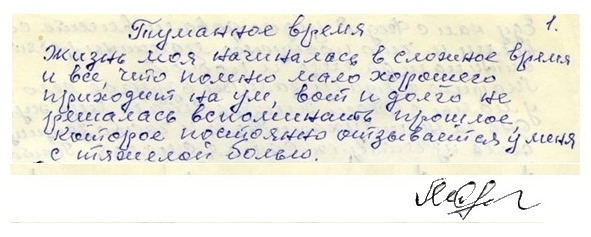 Туманное время
1.
Жизнь моя начиналась в сложное время
и всё, что помню мало хорошего
приходит на ум, вот и долго не
решалась вспоминать прошлое,
которое постоянно отзывается у меня
с тяжелой болью.